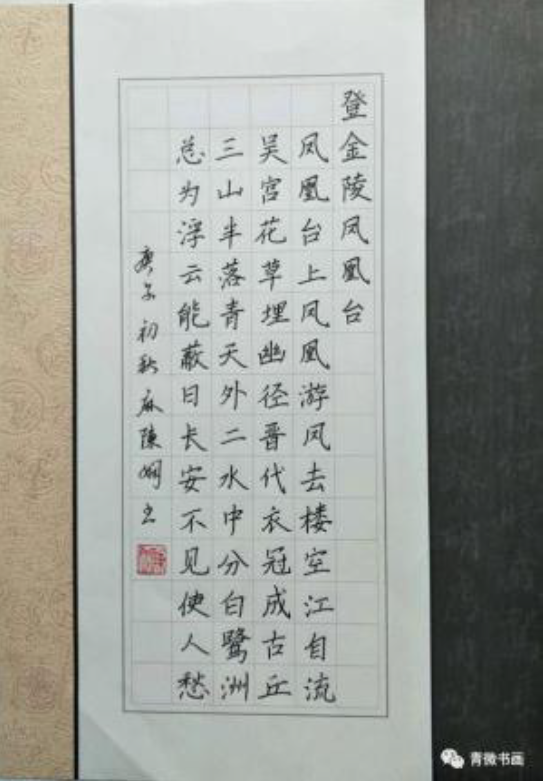 登金陵凤凰台
凤凰台上凤凰游凤去楼空江自流
吴宫花草埋幽径晋代衣冠成古丘
三山半落青天外二水中分白鹭洲
总为浮云能蔽日长安不见使人愁
庚子初秋 陈娴书
青微书画